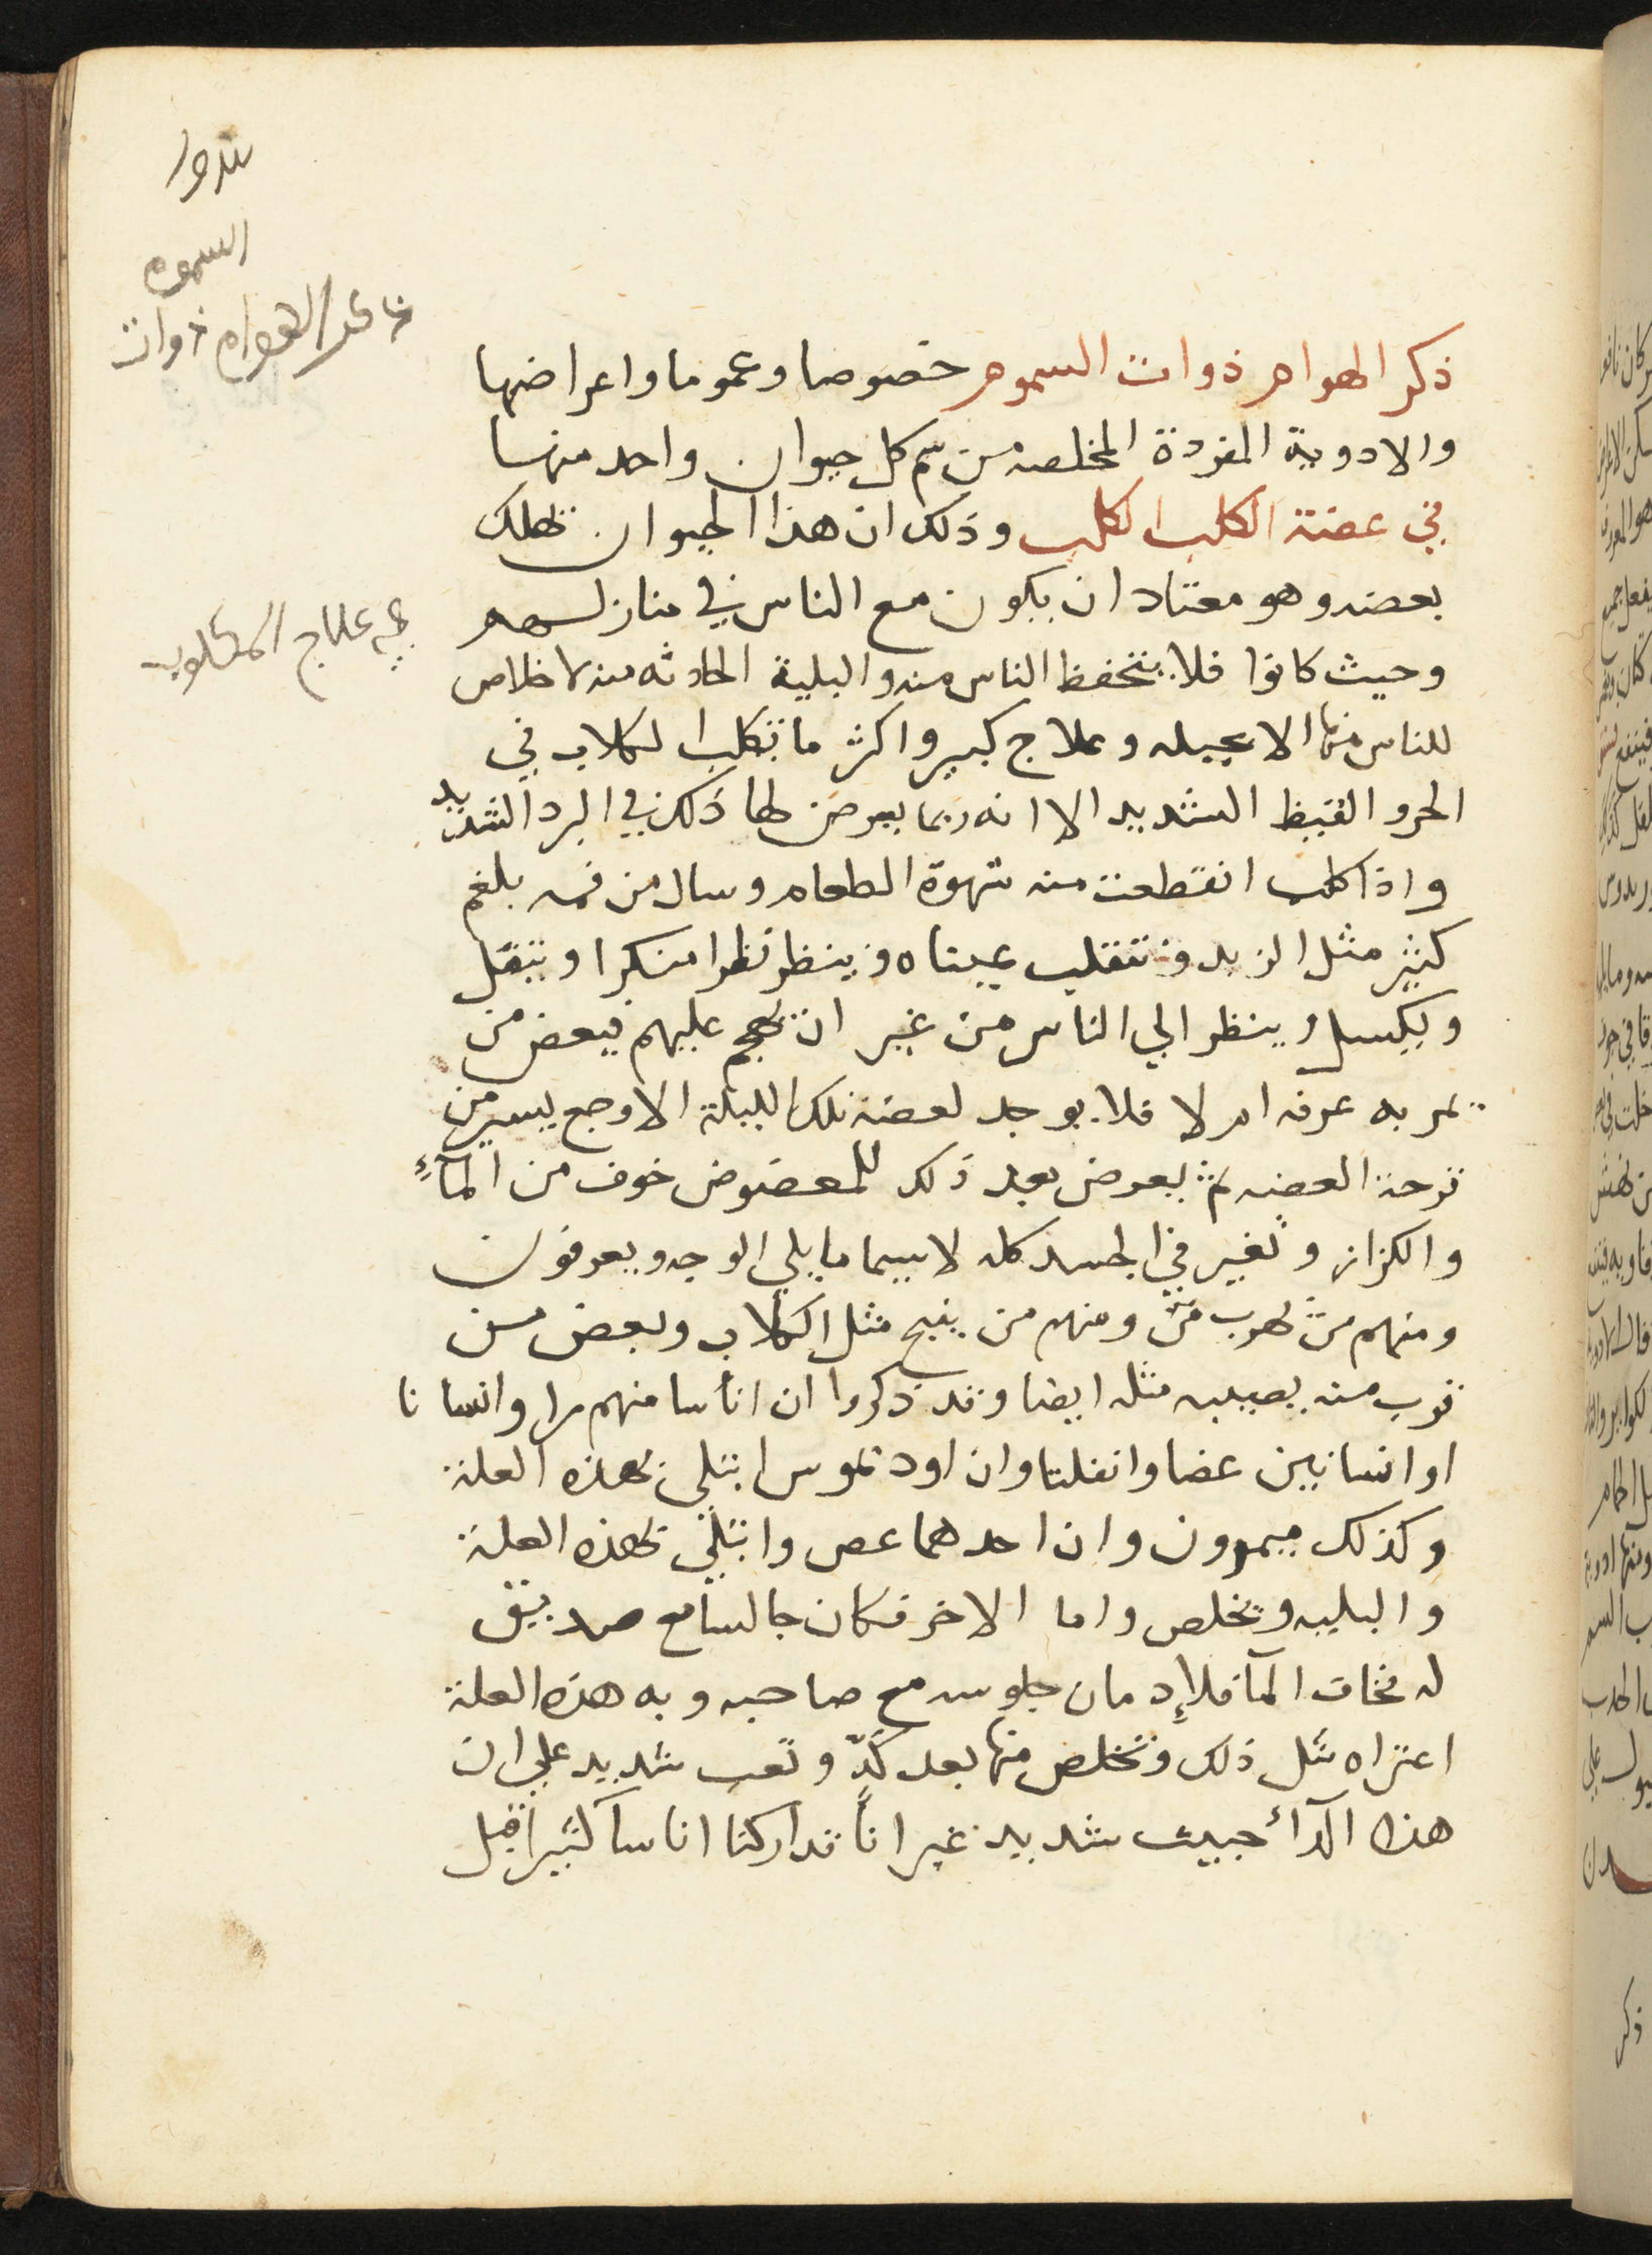 ذكر الهوام ذوات السموم خصوصا وعموما واعراضها
والادوية المفردة المخلصه من سم كل حيوان واحد منها
في عضة الكلب الكلب وذلك ان هذا الحيوان تهلك
بعضه وهو معتاد ان يكون مع الناس في منازلهم
وحيث كانوا فلا يتحفظ الناس منه والبلية الحادثه منه لا خلاص
للناس منها الا بحيله وعلاج كبير واكثر ما تكلب الكلاب في
الحر والقيظ الشديد الا انه ربما يعرض لها ذلك في البرد الشديد
واذا كلب انقطعت منه شهوة الطعام وسال من فمه بلغم
كثير مثل الزبد وتنقلب عيناه وينظر نظرا منكرا ويثقل
ويكسل وينظر الي الناس من غير ان يهجم عليهم فيعض من
يمر به عرفه ام لا فلا يوجد لعضة تلك الليلة الا وجع يسير من
قرحة العضه ثم يعرض بعد ذلك للمعضوض خوف من المآءِ
والكزاز وتغير في الجسد كله لا سيما ما يلي الوجه ويعرقون
ومنهم من يهرب من ومنهم من ينبح مثل الكلاب وبعض من
قرب منه يصيبه مثله ايضا وقد ذكروا ان اناسا منهم مرا وانسانا
او انسانين عضا وانفلتا وان اوديموس ابتلي بهذه العلة
وكذلك ميمرون وان احدهما عض وابتلي بهذه العلة
والبليه وتخلص واما الاخر فكان جالسا مع صديق
له فخاف المآ فلإدمان جلوسه مع صاحبه وبه هذه العلة
اعتراه مثل ذلك وتخلص منها بعد كدٍّ وتعب شديد علي ان
هذا الدآء خبيث شديد غير انا تداركنا اناساً كثيرا قبل
السموم
الهوام ذوات
في علاج المكلوب
ذكر